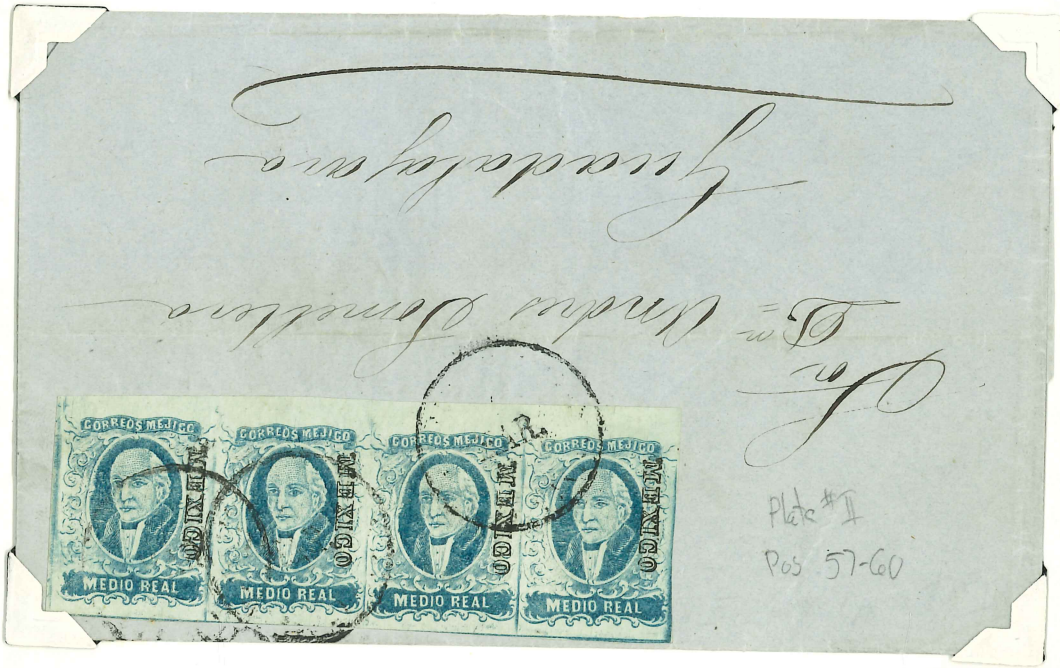 Sor
Dn Andres Somellera
Guadalajara
CORREOS MEJICO
MEXICO
MEDIO REAL
CORREOS MEJICO
MEXICO
MEDIO REAL
CORREOS MEJICO
MEXICO
MEDIO REAL
CORREOS MEJICO
MEXICO
MEDIO REAL
AR.
Plate # II
Pos 57-60